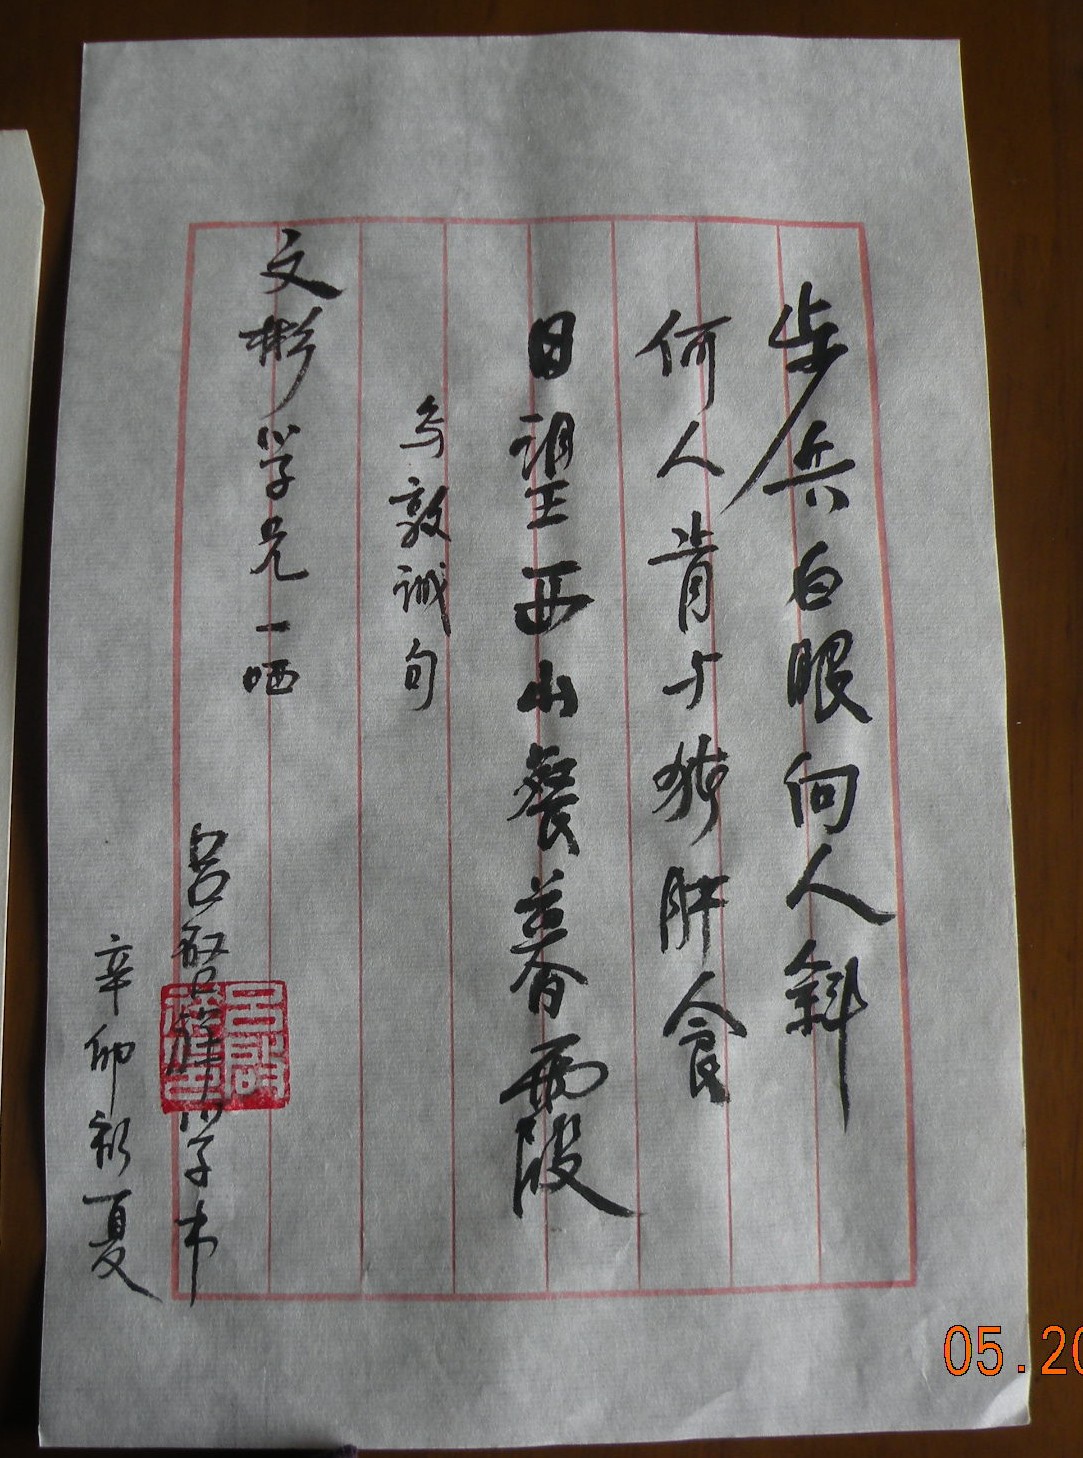 步兵白眼向人斜
何人肯与猪肝食
日望西山餐暮霞
敦诚句
文彬学兄一哂
吕启祥学书
辛卯初夏
吕启祥印
05.20